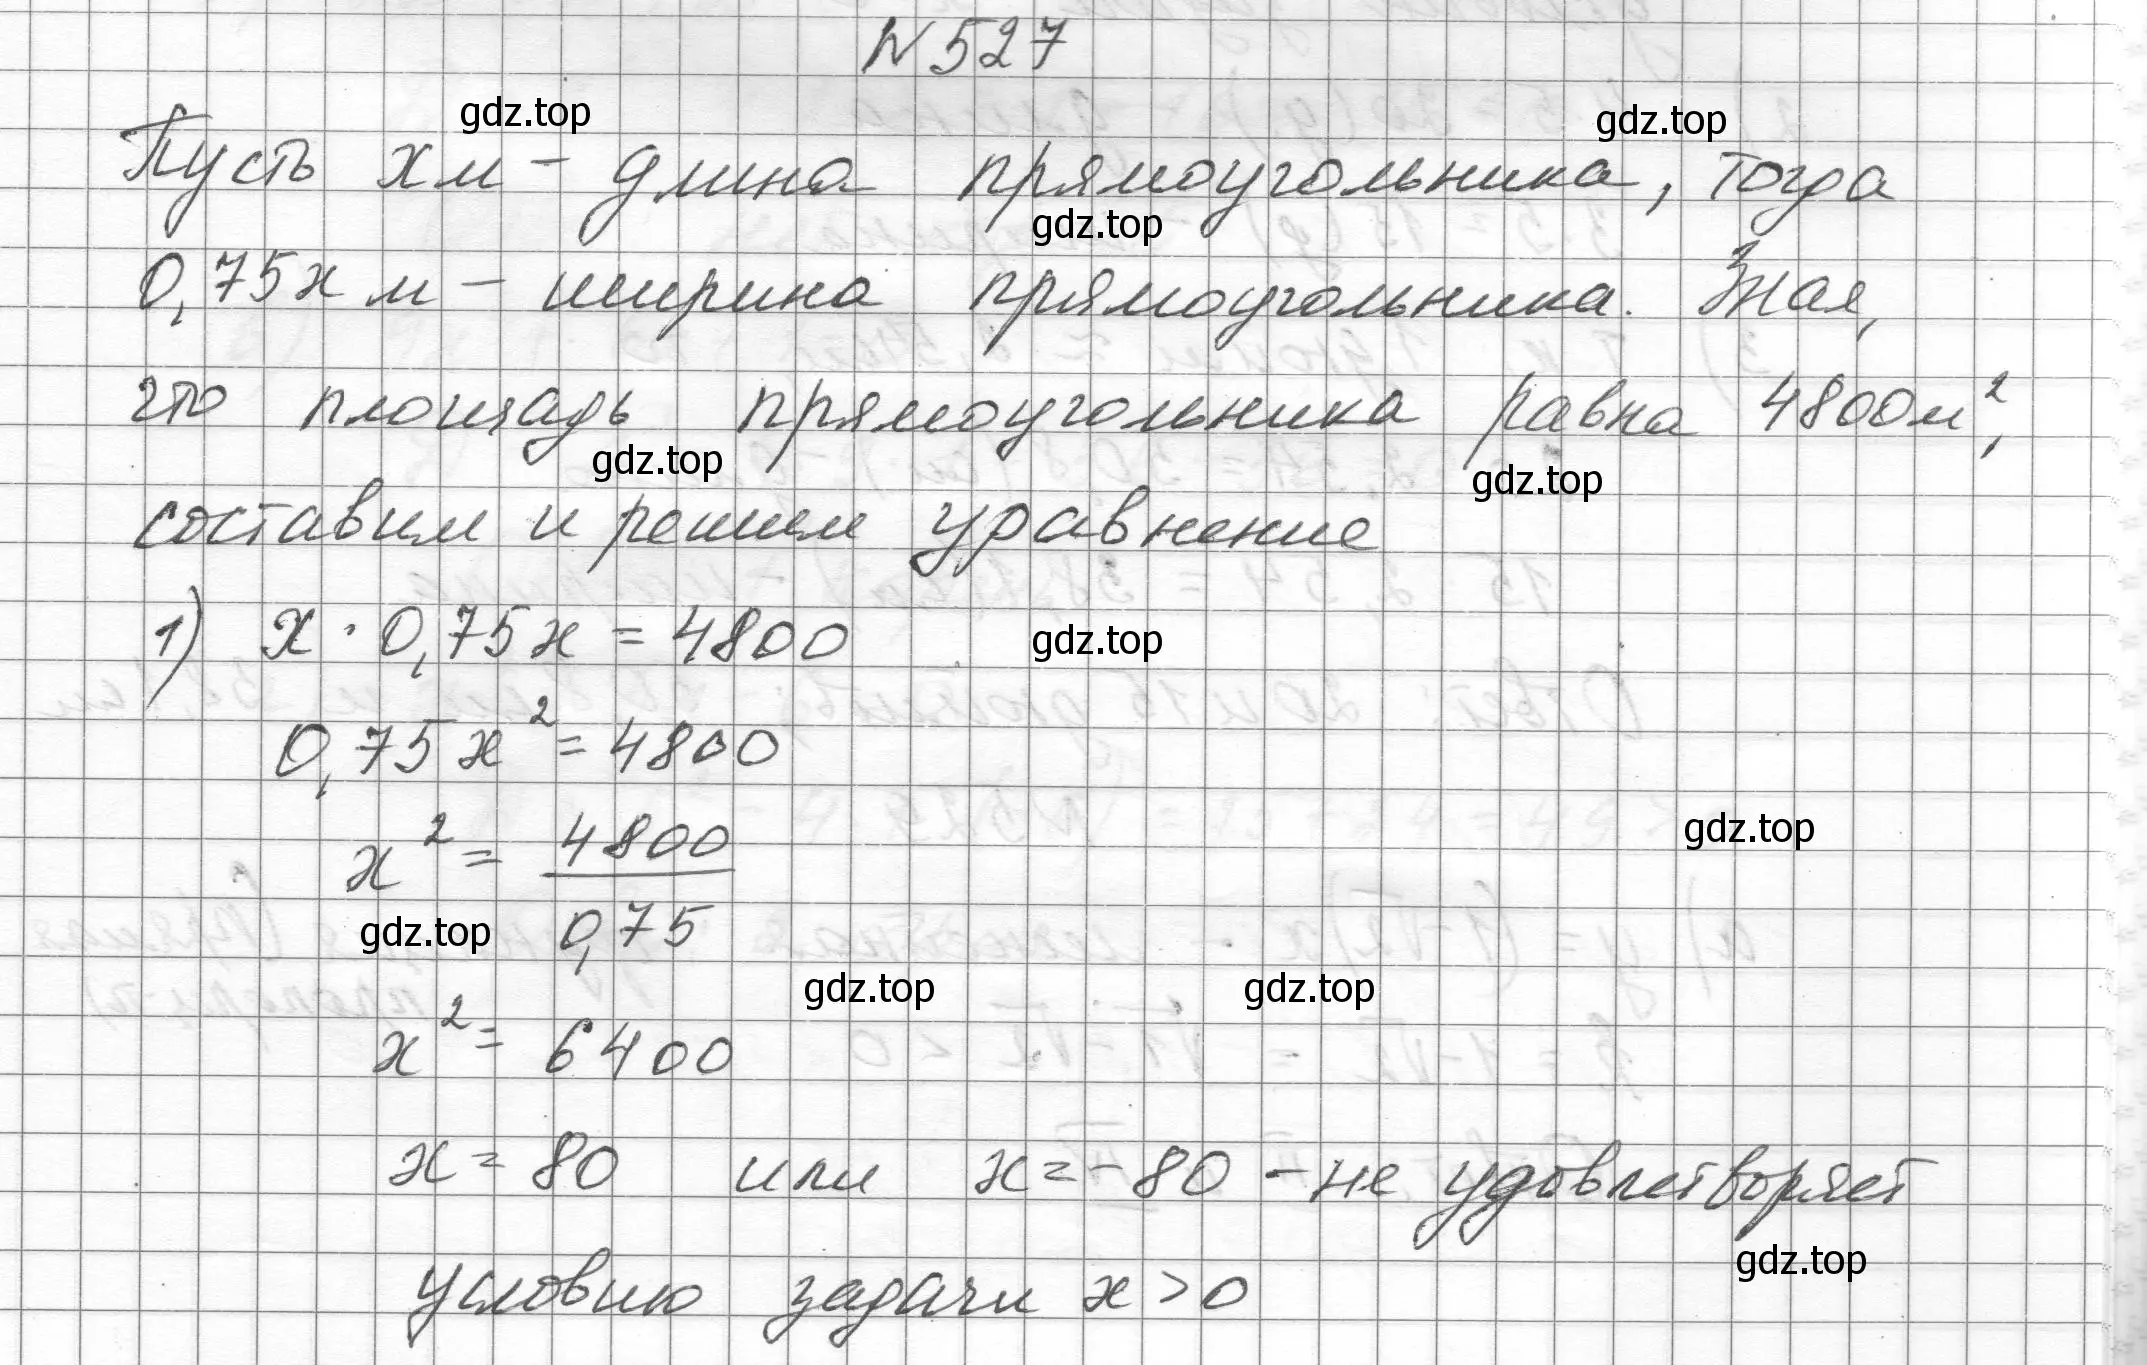 N 527
gdz.top
gdz.top
Пусть х м - длина прямоугольника, тогда
gdz.top
0,75х м - ширина прямоугольника. Зная,
что площадь прямоугольника равна 4800м²,
gdz.top
gdz.top
составим и решим уравнение
1) х · 0,75х = 4800
gdz.top
0,75х² = 4800
gdz.top
х² = 4800
0,75
gdz.top
gdz.top
gdz.top
х² = 6400
х = 80 или х = -80 - не удовлетворяет
gdz.top
условию задачи х > 0